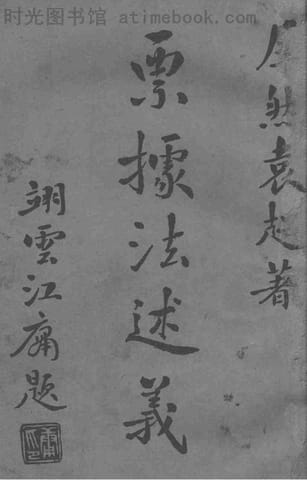 时光图书馆 atimebook.com
然袁著
票據法述義
翊雲江庸題